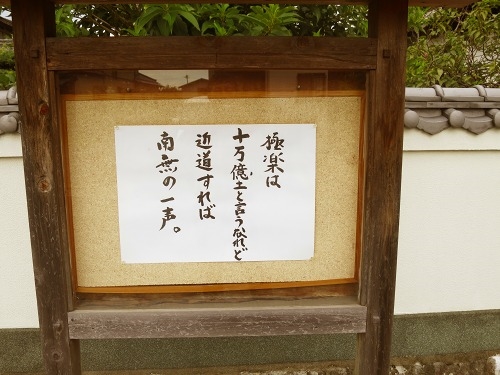 極楽は
十万億土と言うなれど
近道すれば
南無の一声。